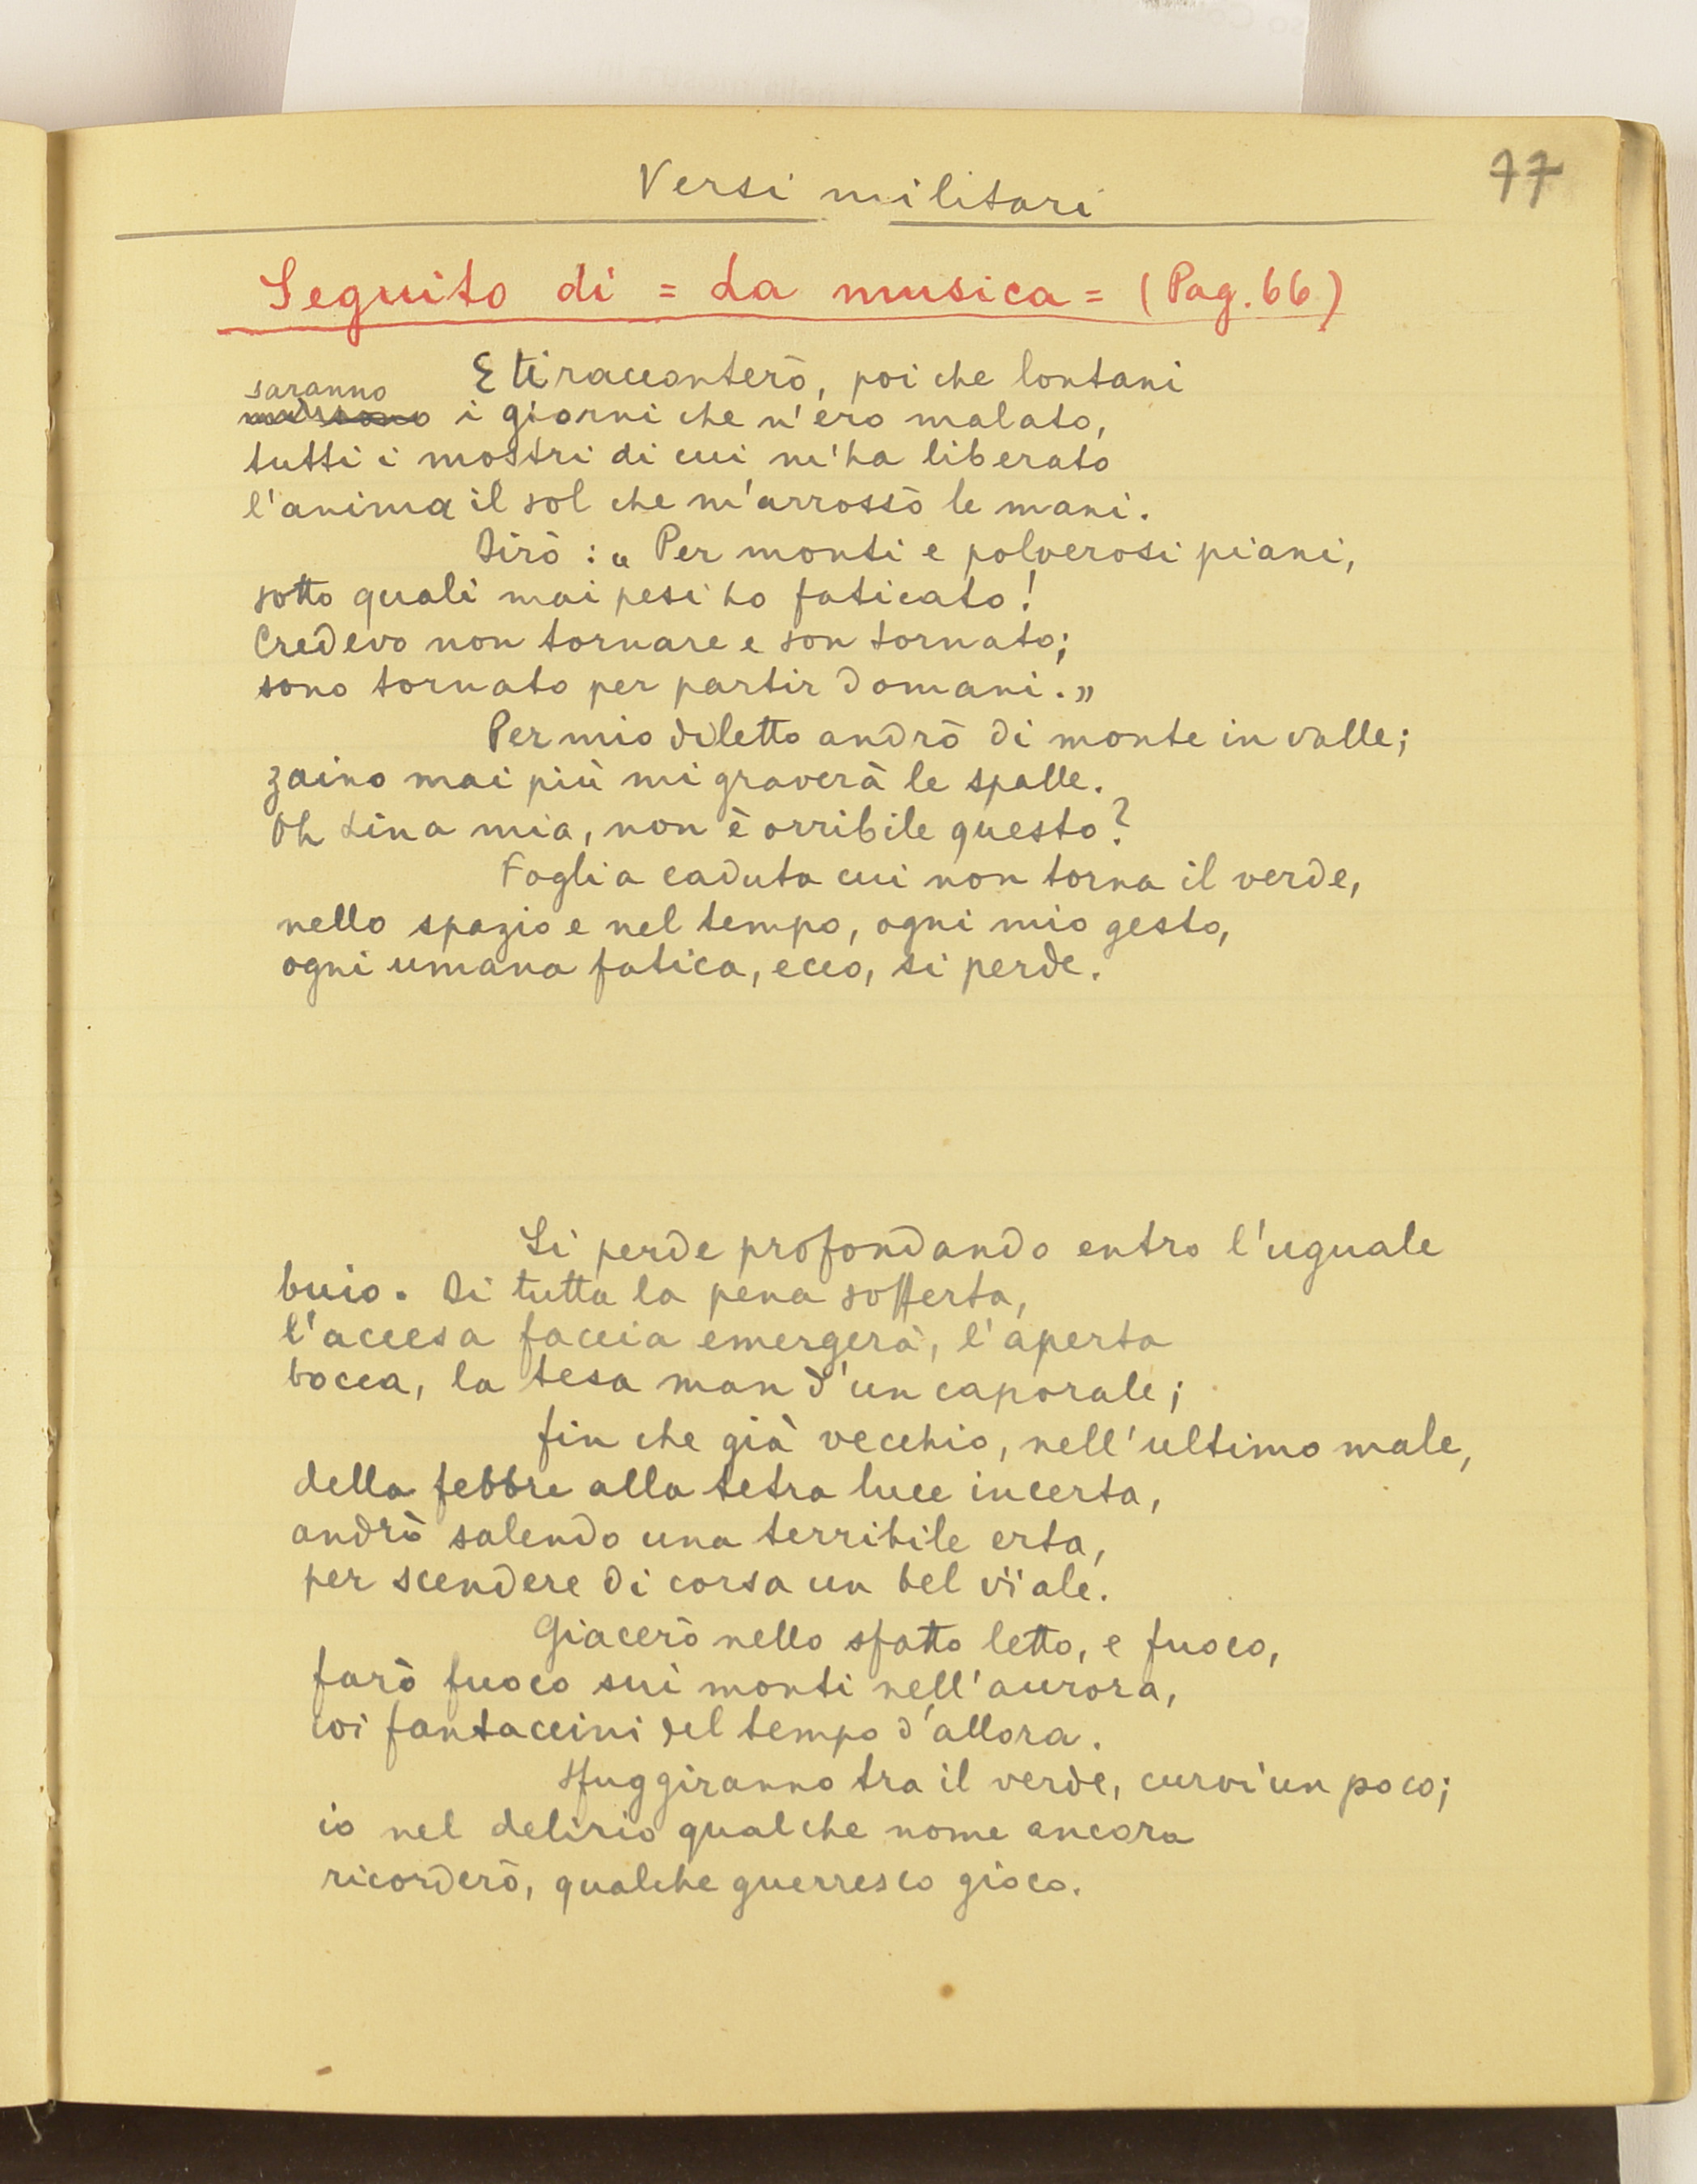 77
Versi militari
Seguito di = La musica = (Pag. 66)
E ti racconterò, poi che lontani
saranno
i giorni che n'ero malato,
tutti i mostri di cui m'ha liberato
l'anima il sol che m'arrossò le mani.
Dirò : „ Per monti e polverosi piani,
sotto quali mai pesi ho faticato!
Credevo non tornare e son tornato;
sono tornato per partir domani. „
Per mio diletto andrò di monte in valle;
zaino mai più mi graverà le spalle.
Oh Lina mia, non è orribile questo?
Foglia caduta cui non torna il verde,
nello spazio e nel tempo, ogni mio gesto,
ogni umana fatica, ecco, si perde.
Si perde profondando entro l'uguale
buio. Di tutta la pena sofferta,
l'accesa faccia emergerà, l'aperta
bocca, la tesa man d'un caporale;
fin che già vecchio, nell'ultimo male,
della febbre alla tetra luce incerta,
andrò salendo una terribile erta,
per scendere di corsa un bel viale.
Giacerò nello sfatto letto, e fuoco,
farò fuoco sui monti nell'aurora,
coi fantaccini del tempo d'allora.
Sfuggiranno tra il verde, curvi un poco;
io nel delirio qualche nome ancora
ricorderò, qualche guerresco gioco.